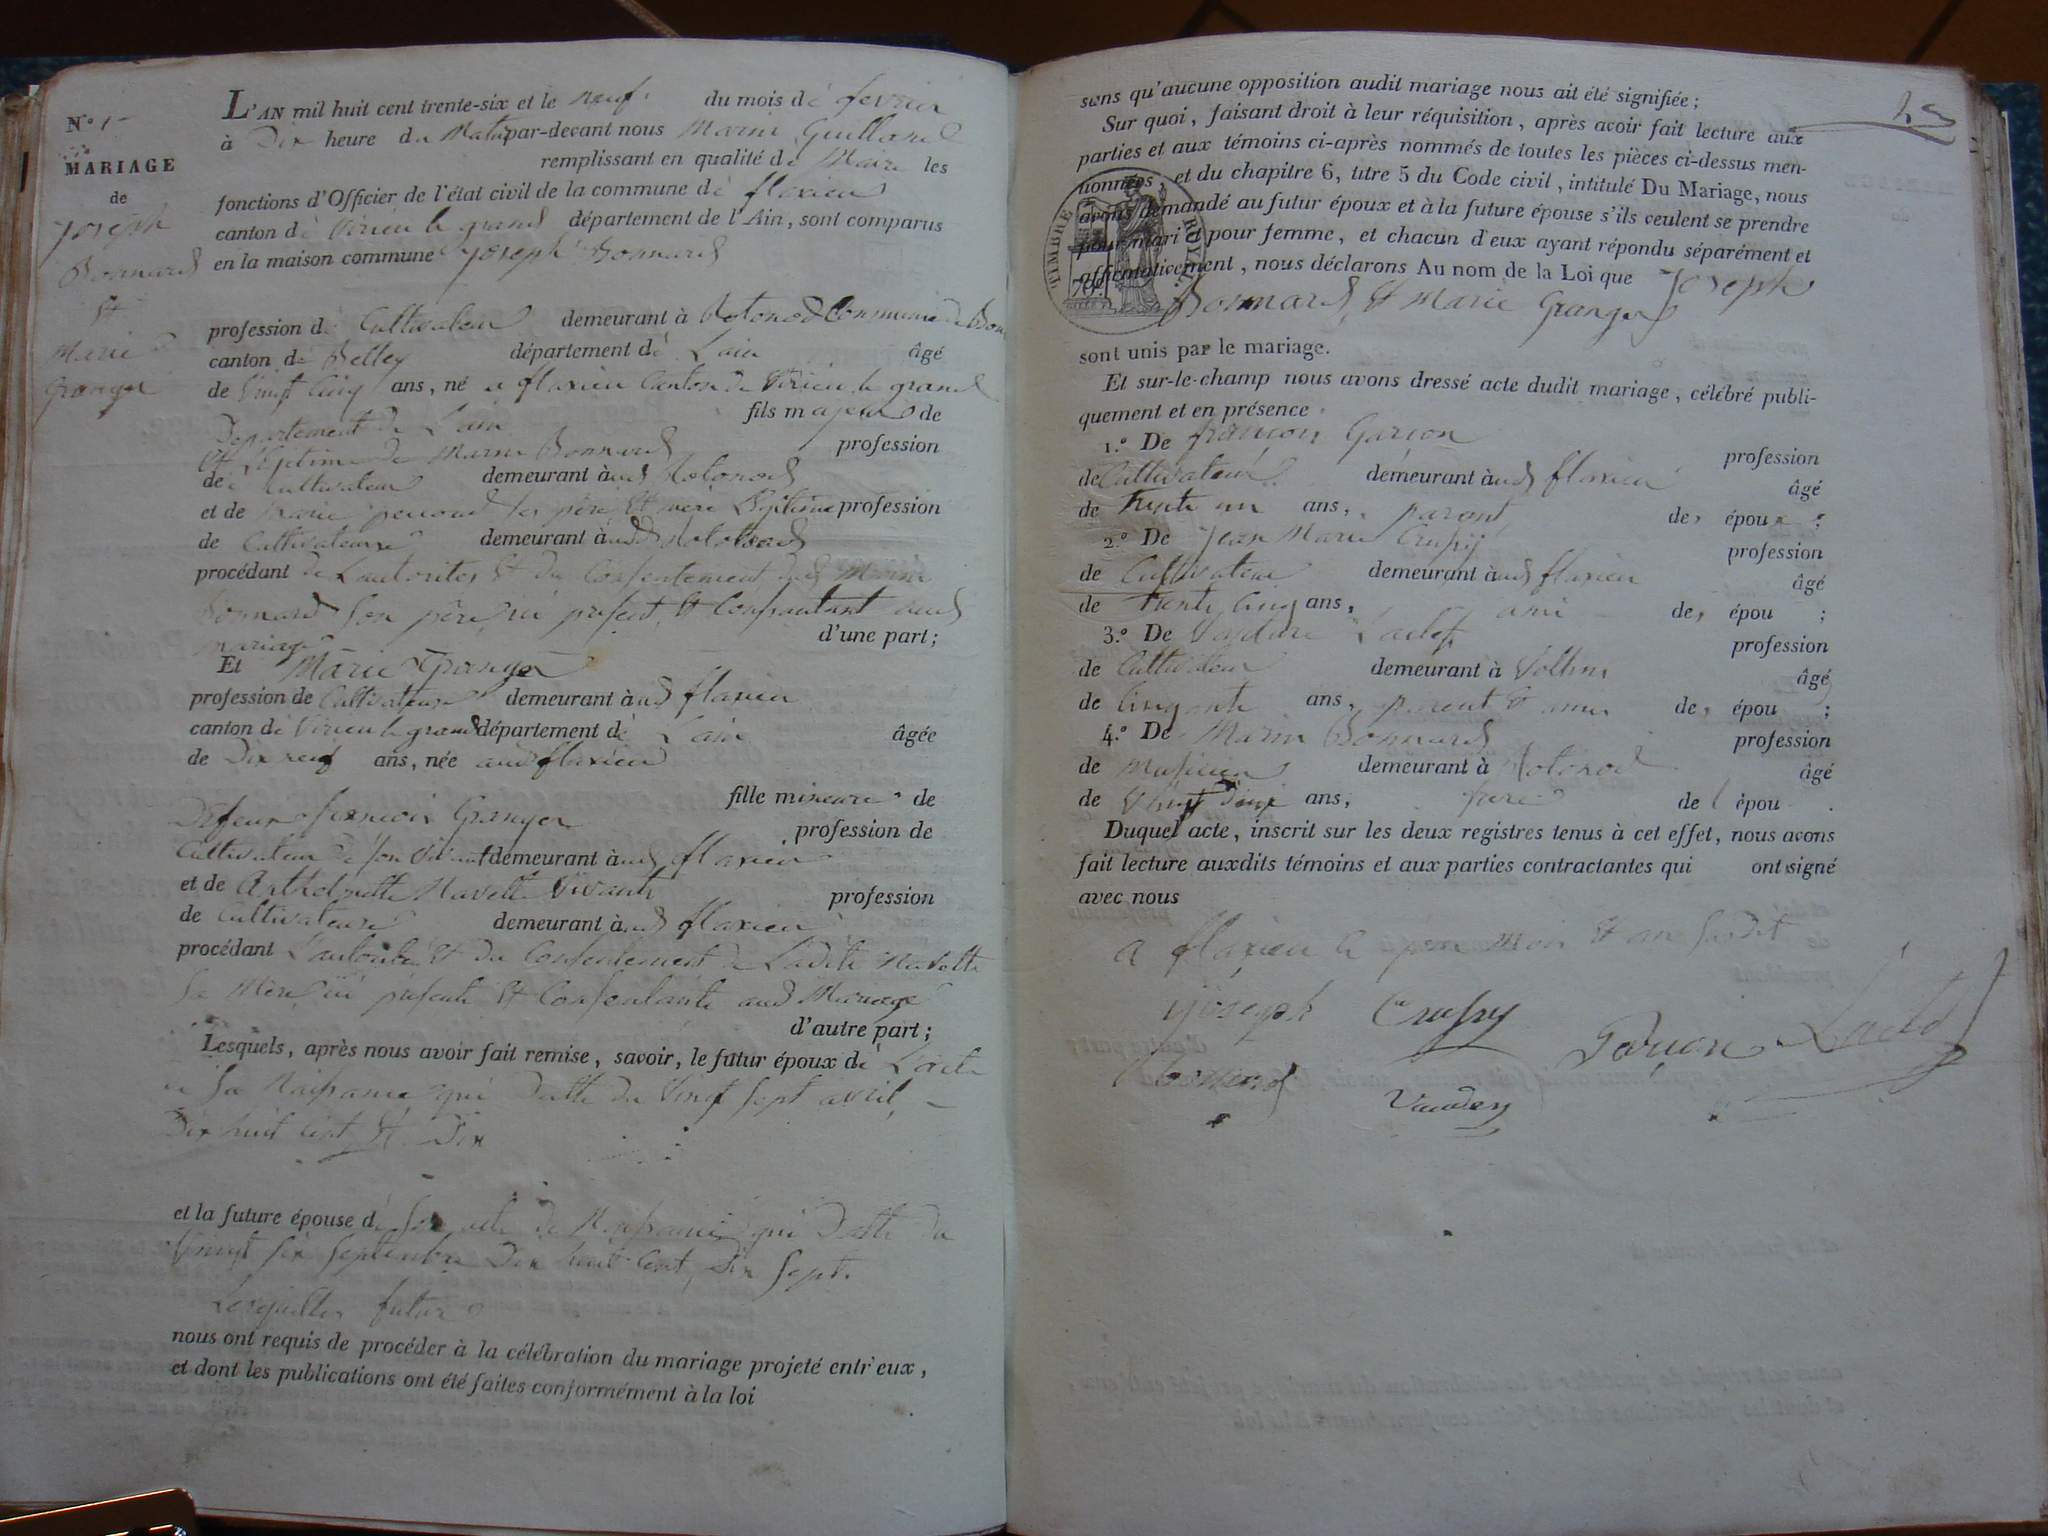 N.º 1
MARIAGE
de
Joseph
Bonnard
Et
Marie
Granger
L'AN mil huit cent trente-six et le neuf du mois de fevrier
à Dix heure du Matin par-devant nous Marin Guilland
remplissant en qualité de Maire les
fonctions d'Officier de l'état civil de la commune de flaxieu
canton de Virieu le grand département de l'Ain, sont comparus
en la maison commune Joseph Bonnard
profession de Cultivateur demeurant à Rotonod Commune de
canton de Belley département de Lain âgé
de Vingt Cinq ans, né a flaxieu Canton de Virieu le grand
Departement de Lain fils majeur de
Et Legitime de Marin Bonnard profession
de cultivateur demeurant à aud Rotonod
et de Marie ses père Et mere Legitime profession
de Cultivateurs demeurant à aud Rotonod
procédant de Lautorites Et du Consentement dud Marin
Bonnard Son père ici present Et Consentant aud
mariage d'une part;
Et Marie Granger
profession de Cultivateuse demeurant à aud flaxieu
canton de Virieu le grand département de Lain âgée
de Dix neuf ans, née aud flaxieu
fille mineure de
Defeux francois Granger profession de
Cultivateur de Son Vivant demeurant à aud flaxieu
et de Anthelmette Navette Vivante profession
de Cultivateuse demeurant à aud flaxieu
procédant Lautorité Et du Consentement de Ladite Navette
Sa Mère ici présente Et Consentante aud Mariage
d'autre part;
Lesquels, après nous avoir fait remise, savoir, le futur époux de Lacte
de Sa Naissance qui Datte du Vingt Sept avril
Dix huit Cent Et Dix
et la future épouse de Son acte de Naissance qui Datte du
Vingt Six Septembre Dix huit Cent Dix Sept.
Lesquelles futurs
nous ont requis de procéder à la célébration du mariage projeté entr'eux,
et dont les publications ont été faites conformément à la loi
sans qu'aucune opposition audit mariage nous ait été signifiée;
Sur quoi, faisant droit à leur réquisition, après avoir fait lecture aux
parties et aux témoins ci-après nommés de toutes les pièces ci-dessus men-
tionnées, et du chapitre 6, titre 5 du Code civil, intitulé Du Mariage, nous
avons demandé au futur époux et à la future épouse s'ils veulent se prendre
pour mari et pour femme, et chacun d'eux ayant répondu séparément et
affirmativement, nous déclarons Au nom de la Loi que Joseph
Bonnard Et Marie Granger
TIMBRE ROYAL
sont unis par le mariage.
Et sur-le-champ nous avons dressé acte dudit mariage, célébré publi-
quement et en présence
1.º De francois Garion profession
de Cultivateur demeurant à aud flaxieu âgé
de Trente un ans, parent de, époux;
2.º De Jean Marie Crussy profession
de Cultivateur demeurant à aud flaxieu âgé
de Trente Cinq ans, ami de, épou ;
3.º De profession
de Cultivateur demeurant à âgé
de Cinquante ans, parent Et ami de, épou ;
4.º De Marin Bonnard profession
de Musicien demeurant à Rotonod âgé
de Vingt ans, frere de l épou .
Duquel acte, inscrit sur les deux registres tenus à cet effet, nous avons
fait lecture auxdits témoins et aux parties contractantes qui ont signé
avec nous
a flaxieu le jour Mois Et an Susdit
joseph Crussy Garion
Bonnard